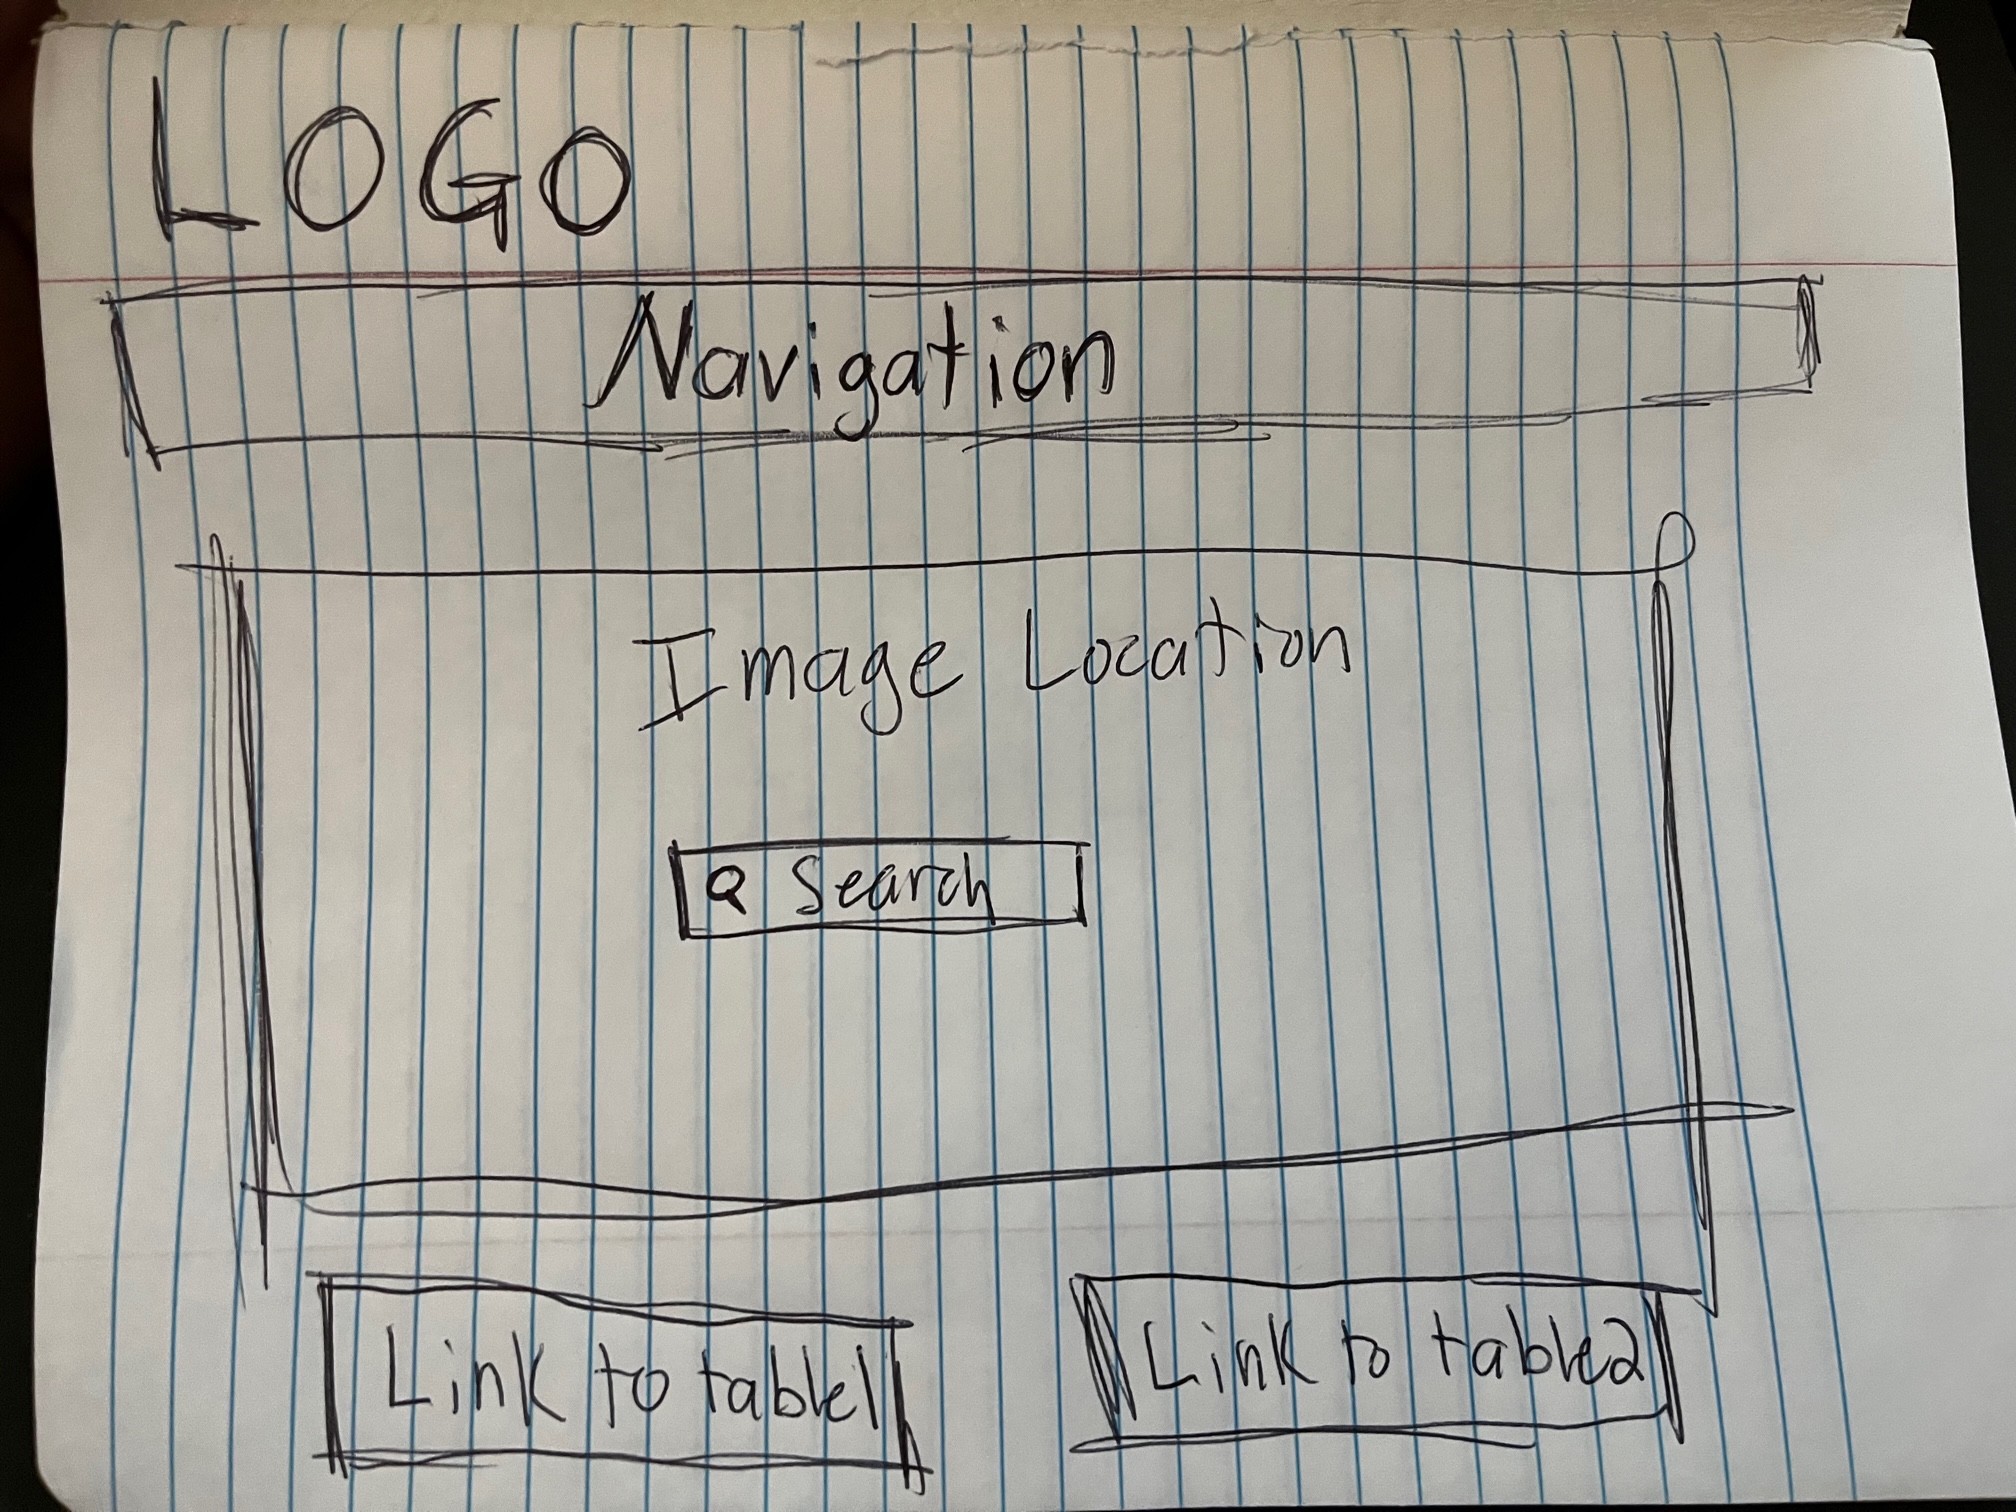 LOGO
Navigation
Image Location
Search
Link to table1
Link to table2